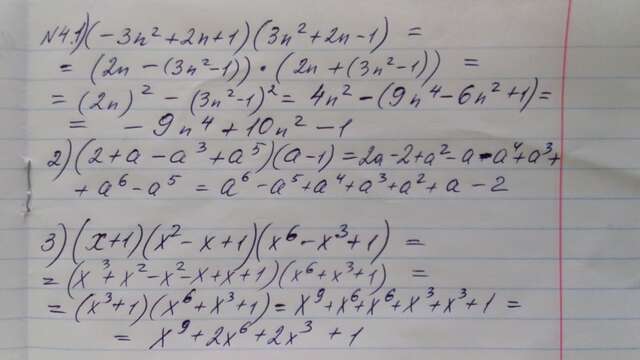 N4.1) (-3n²+2n+1)(3n²+2n-1) =
= (2n-(3n²-1))·(2n+(3n²-1)) =
= (2n)²-(3n²-1)² = 4n²-(9n⁴-6n²+1) =
= -9n⁴+10n²-1
2) (2+a-a³+a⁵)(a-1) = 2a-2+a²-a-a⁴+a³+
+a⁶-a⁵ = a⁶-a⁵+a⁴+a³+a²+a-2
3) (x+1)(x²-x+1)(x⁶-x³+1) =
= (x³+x²-x²-x+x+1)(x⁶+x³+1) =
= (x³+1)(x⁶+x³+1) = x⁹+x⁶+x⁶+x³+x³+1 =
= x⁹+2x⁶+2x³+1